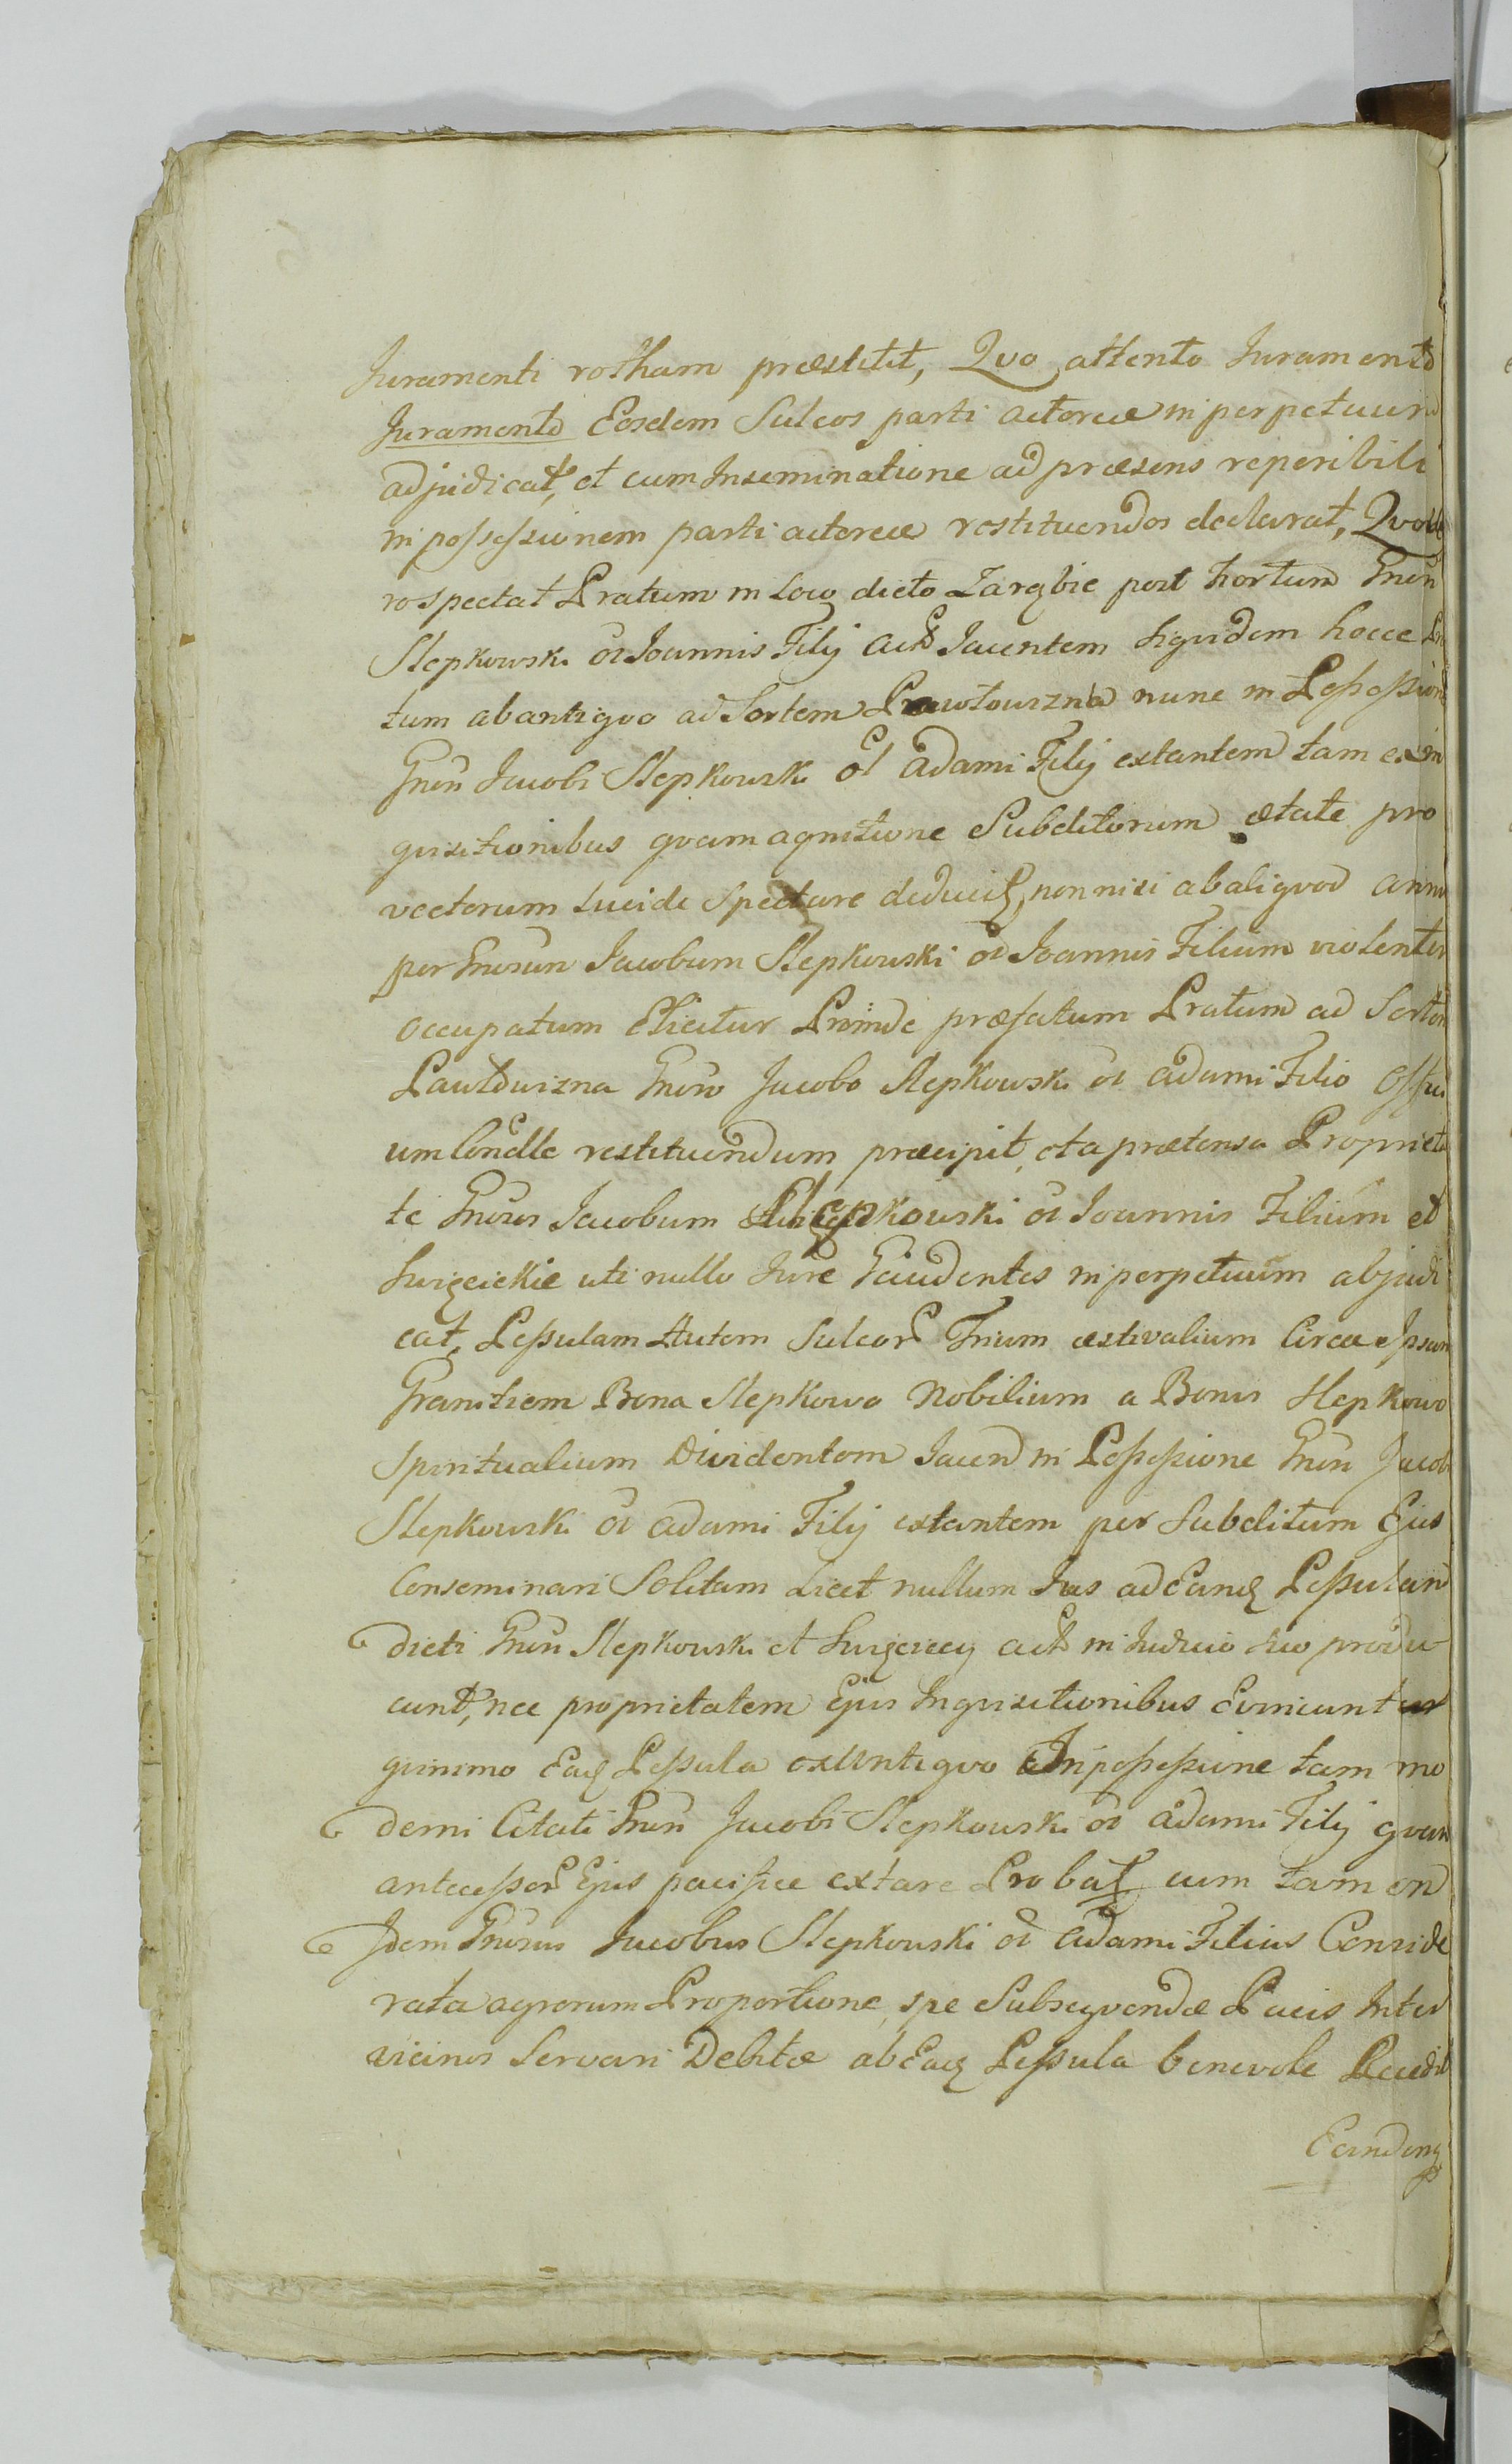 Juramenti rotham præstitit, Qvo attento Juramento
Juramento Eosdem Sulcos parti actoreæ in perpetuum
adjudicat, et cum Inseminatione ad præsens reperibili
in possessionem parti actoreæ restituendos declarat, Qvod
respectat Pratum in Loco dicto Zarębie post hortum Gnsi
Slepkowski ol Joannis Filij actt Jacentem siqvidem hocce Pra
tum ab antiqvo ad Sortem Pawłowizna nunc in Possessione
Gnsi Jacobi Slepkowski ol Adami Filij extantem tam ex in
qvisitionibus qvam agnitione Subditorum ætate pro
vectorum lucide Spectare deducit, non nisi ab aliqvod annis
per Gnsum Jacobum Slepkowski ol Joannis Filium violenter
occupatum Elicitur Proinde præfatum Pratum ad Sortem
Pawłowizna Gnso Jacobo Slepkowski ol Adami Filio Offici
um restituendum præcipit, et a prætensa Proprieta
te Gnsos Jacobum Slepkowski ol Joannis Filium et
uti nullo Jure Gaudentes in perpetuum abjudi
cat, Pessulam Autem Sulcor Trium æstivalium Circa Ipsam
Granitiem Bona Slepkowo Nobilium a Bonis Slepkowo
Spiritualium Dividentem Jacen in Possessione Gnsi Jacobi
Slepkowski ol Adami Filij extantem per Subditum Ejus
Conseminari Solitam Licet nullum Jus ad Eandem Pessulam
dicti Gnsi Slepkowski et actt in Judicio suo produ
cunt, nec proprietatem Ejus Inqvisitionibus Evincunt
qvinimo Eadem Pessula ex Antiqvo In possessione tam mo
derni Citati Gnsi Jacobi Slepkowski ol Adami Filij qvam
antecessor Ejus pacifice extare Probat cum tamen
Idem Gnsus Jacobus Slepkowski ol Adami Filius Conside
rata agrorum Proportione, spe Subseqvendæ Pacis Inter
vicinos Servari Debitæ ab Eadem Pessula benevole Recedit
Eandemq